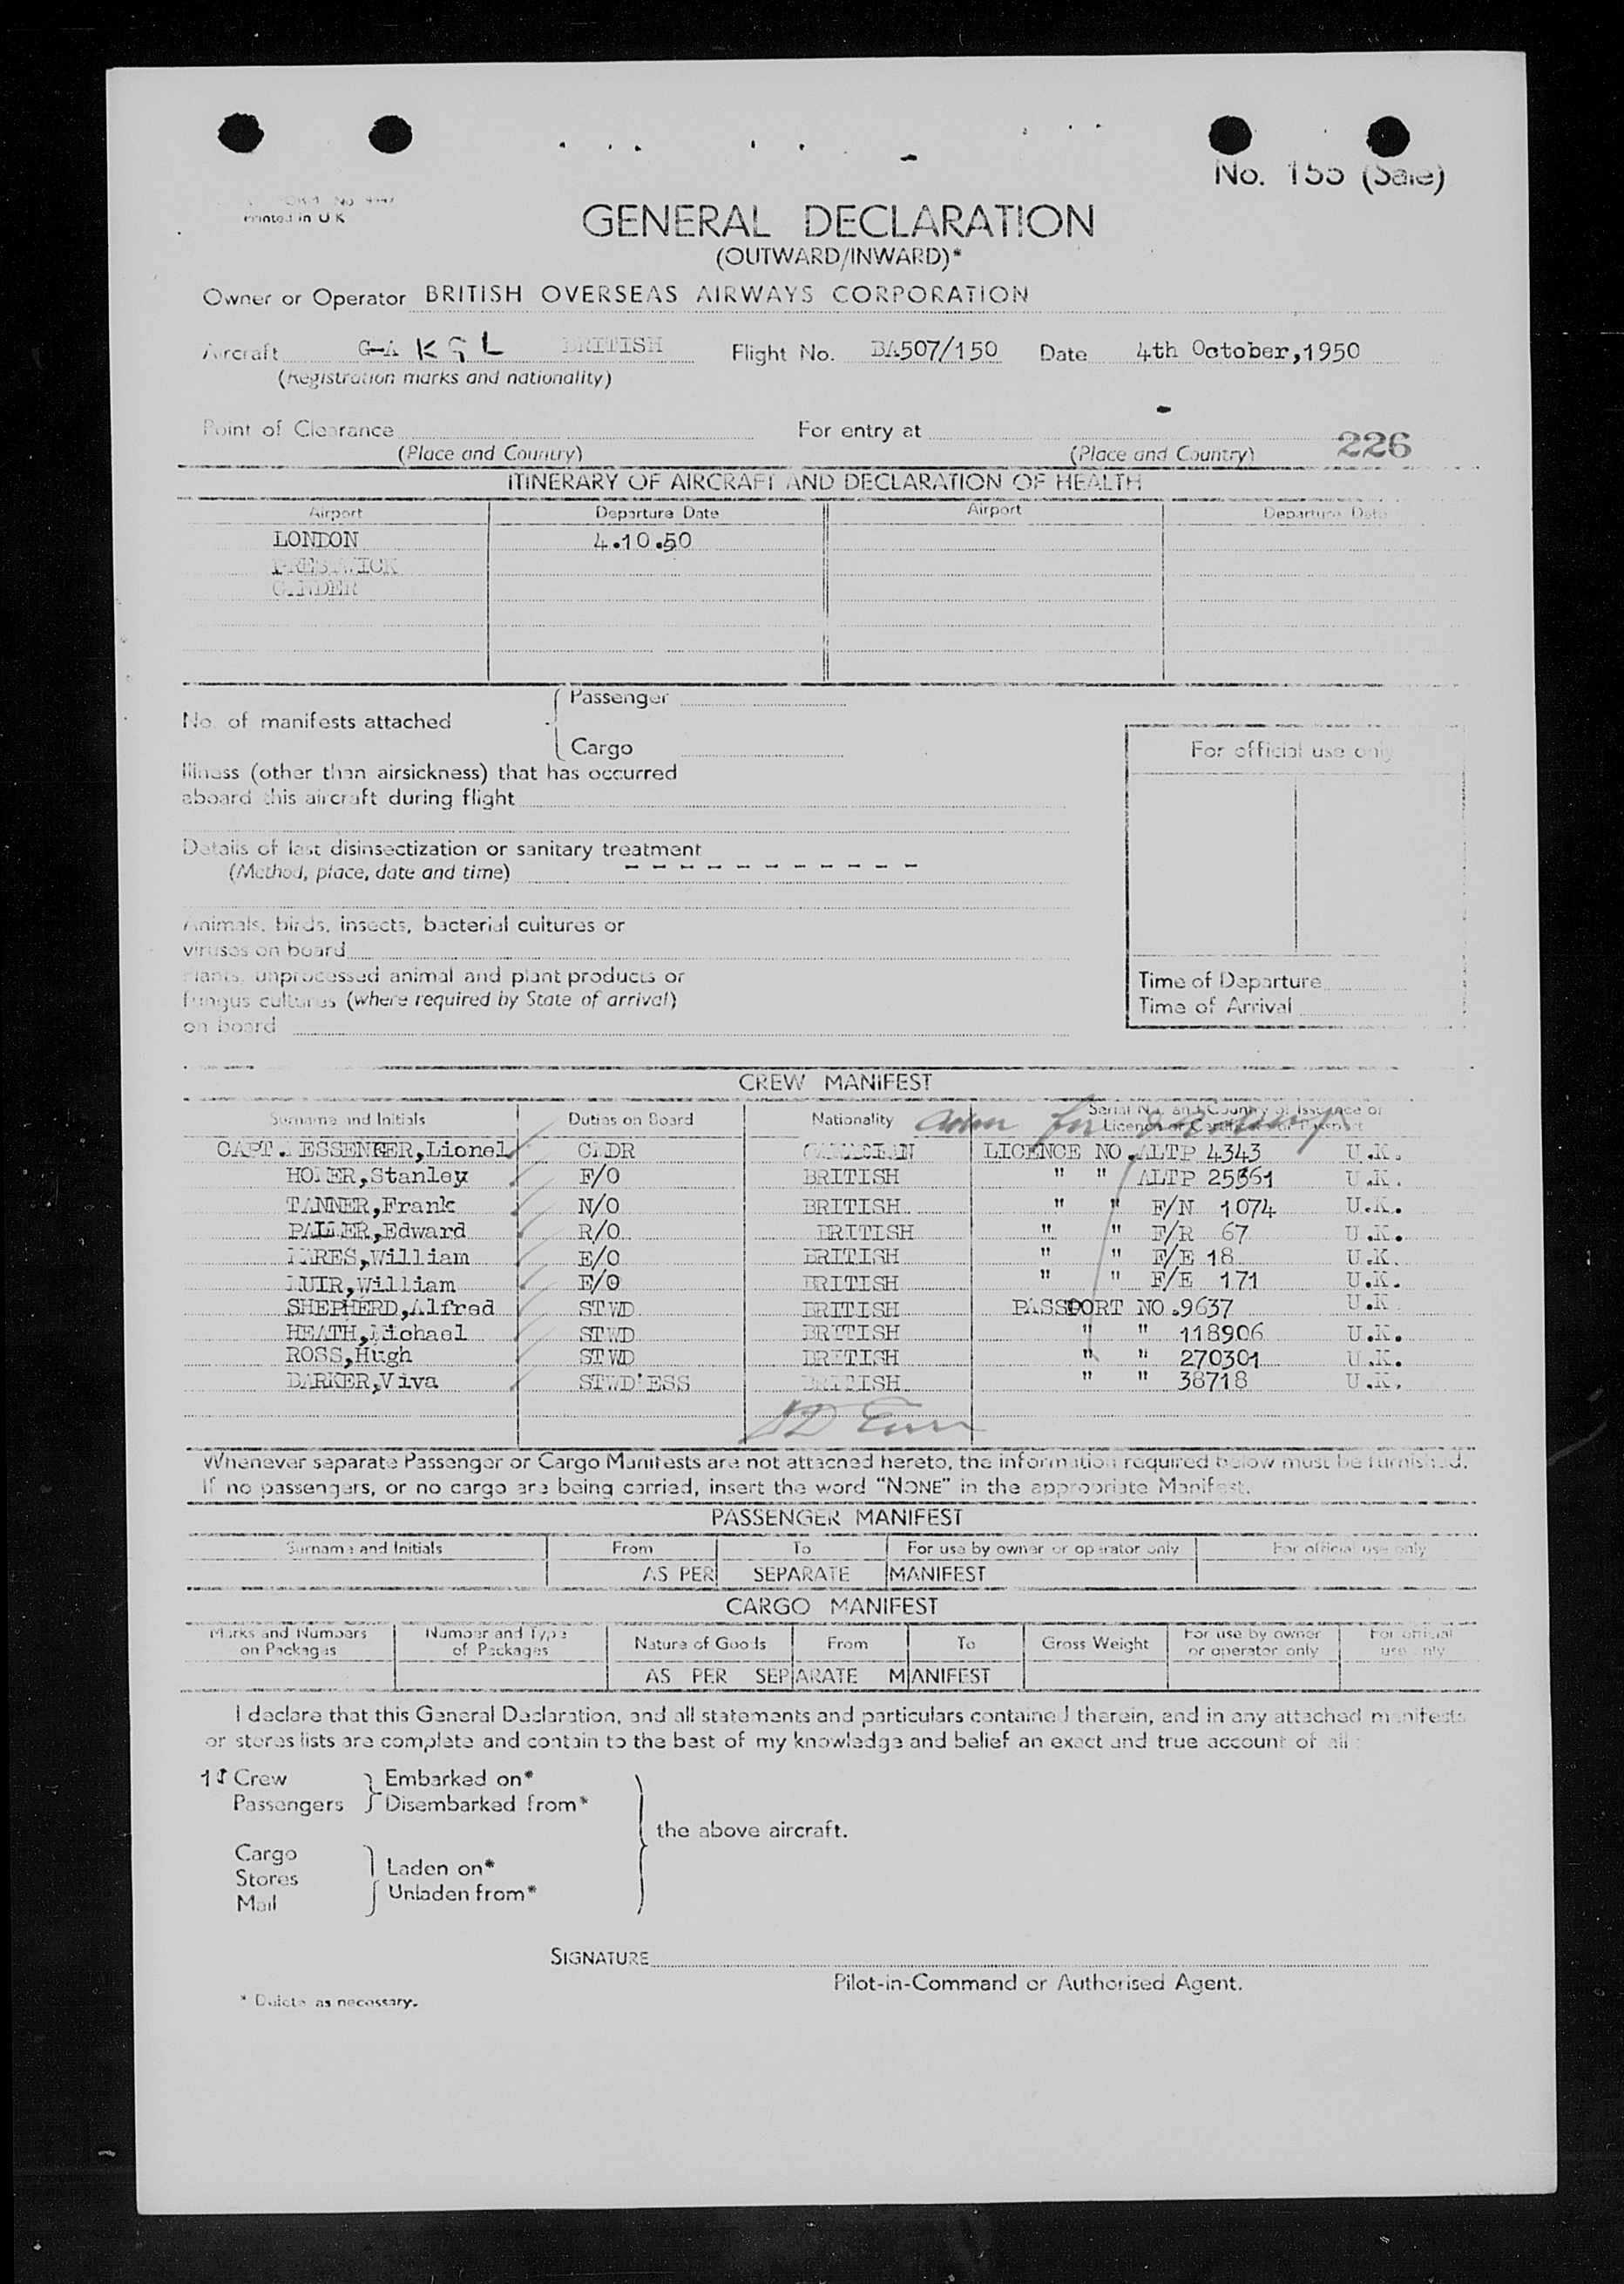 No. 155 (Sale)
Printed in U K
GENERAL DECLARATION
(OUTWARD/INWARD)*
Owner or Operator BRITISH OVERSEAS AIRWAYS CORPORATION
Aircraft G-A K G L BRITISH Flight No. BA507/150 Date 4th October,1950
(Registration marks and nationality)
Point of Clearance For entry at
(Place and Country) (Place and Country) 226
ITINERARY OF AIRCRAFT AND DECLARATION OF HEALTH
Airport Departure Date Airport Departure Date
LONDON 4.10.50
PRESTWICK
GANDER
Passenger
No. of manifests attached
Cargo
For official use only
Illness (other than airsickness) that has occurred
aboard this aircraft during flight
Details of last disinsectization or sanitary treatment
(Method, place, date and time) - - - - - - - - - - -
Animals, birds, insects, bacterial cultures or
viruses on board
Plants, unprocessed animal and plant products or
fungus cultures (where required by State of arrival)
on board
Time of Departure
Time of Arrival
CREW MANIFEST
Surname and Initials Duties on Board Nationality Serial No. and Country of Issuance of
Licence or Certificate or Passport
CAPT. MESSENGER,Lionel CMDR CANADIAN LICENCE NO.ALTP 4343 U.K.
HOMER,Stanley F/O BRITISH " " ALTP 25361 U.K.
TANNER,Frank N/O BRITISH " " F/N 1074 U.K.
PALMER,Edward R/O BRITISH " " F/R 67 U.K.
MARES,William E/O BRITISH " " F/E 18 U.K.
MUIR,William E/O BRITISH " " F/E 171 U.K.
SHEPHERD,Alfred STWD BRITISH PASSPORT NO.9637 U.K
HEATH,Michael STWD BRITISH " " 118906 U.K.
ROSS,Hugh STWD BRITISH " " 270301 U.K.
BARKER,Viva STWD'ESS BRITISH " " 38718 U.K.
Whenever separate Passenger or Cargo Manifests are not attached hereto, the information required below must be furnished.
If no passengers, or no cargo are being carried, insert the word "NONE" in the appropriate Manifest.
PASSENGER MANIFEST
Surname and Initials From To For use by owner or operator only For official use only
AS PER SEPARATE MANIFEST
CARGO MANIFEST
Marks and Numbers on Packages Number and Type of Packages Nature of Goods From To Gross Weight For use by owner or operator only For official use only
AS PER SEPARATE MANIFEST
I declare that this General Declaration, and all statements and particulars contained therein, and in any attached manifests
or stores lists are complete and contain to the best of my knowledge and belief an exact and true account of all :
Crew Embarked on*
Passengers Disembarked from*
the above aircraft.
Cargo
Laden on*
Stores
Unladen from*
Mail
SIGNATURE
Pilot-in-Command or Authorised Agent.
* Delete as necessary.